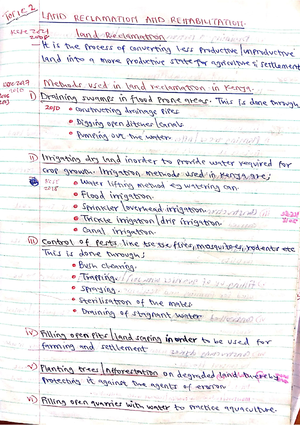 Topic 2
LAND RECLAMATION AND REHABILITATION.
KCSE 2021
2008
Land Reclamation
- It is the process of converting less productive/unproductive
land into a more productive state for agriculture & settlement
Methods used in land reclamation in Kenya.
i) Draining swamps in flood prone areas. This is done through
2010
• Constructing drainage pipes
• Digging open ditches/canals
• Pumping out the water
ii) Irrigating dry land inorder to provide water required for
crop growth. Irrigation methods used in Kenya are;
2018
• Water lifting method eg watering can.
• Flood irrigation.
• Sprinkler/overhead irrigation.
• Trickle irrigation/drip irrigation
• Canal irrigation.
iii) Control of pests like tse tse flies, mosquitoes, rodents etc
This is done through;
• Bush clearing.
• Trapping.
• Spraying.
• Sterilisation of the males
• Draining of stagnant water
iv) Filling open pits/land scaping inorder to be used for
farming and settlement
v) Planting trees/Afforestation on degraded land thereby
protecting it against the agents of erosion
vi) Filling open quarries with water to practice aquaculture.